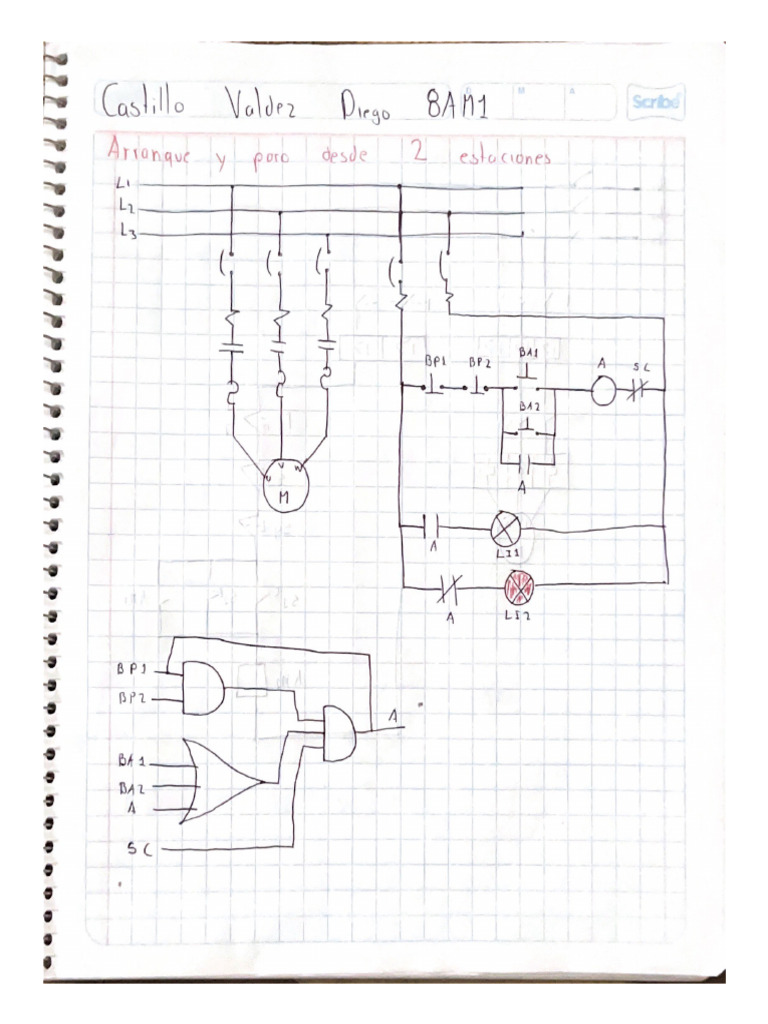 Castillo Valdez Diego 8AM1
M A
Scribe
Arranque y paro desde 2 estaciones
L1
L2
L3
BP1 BP2 BA1 A SC
BA2
A
U V W
M
A LI1
A LI2
BP1
BP2
A
BA1
BA2
A
SC